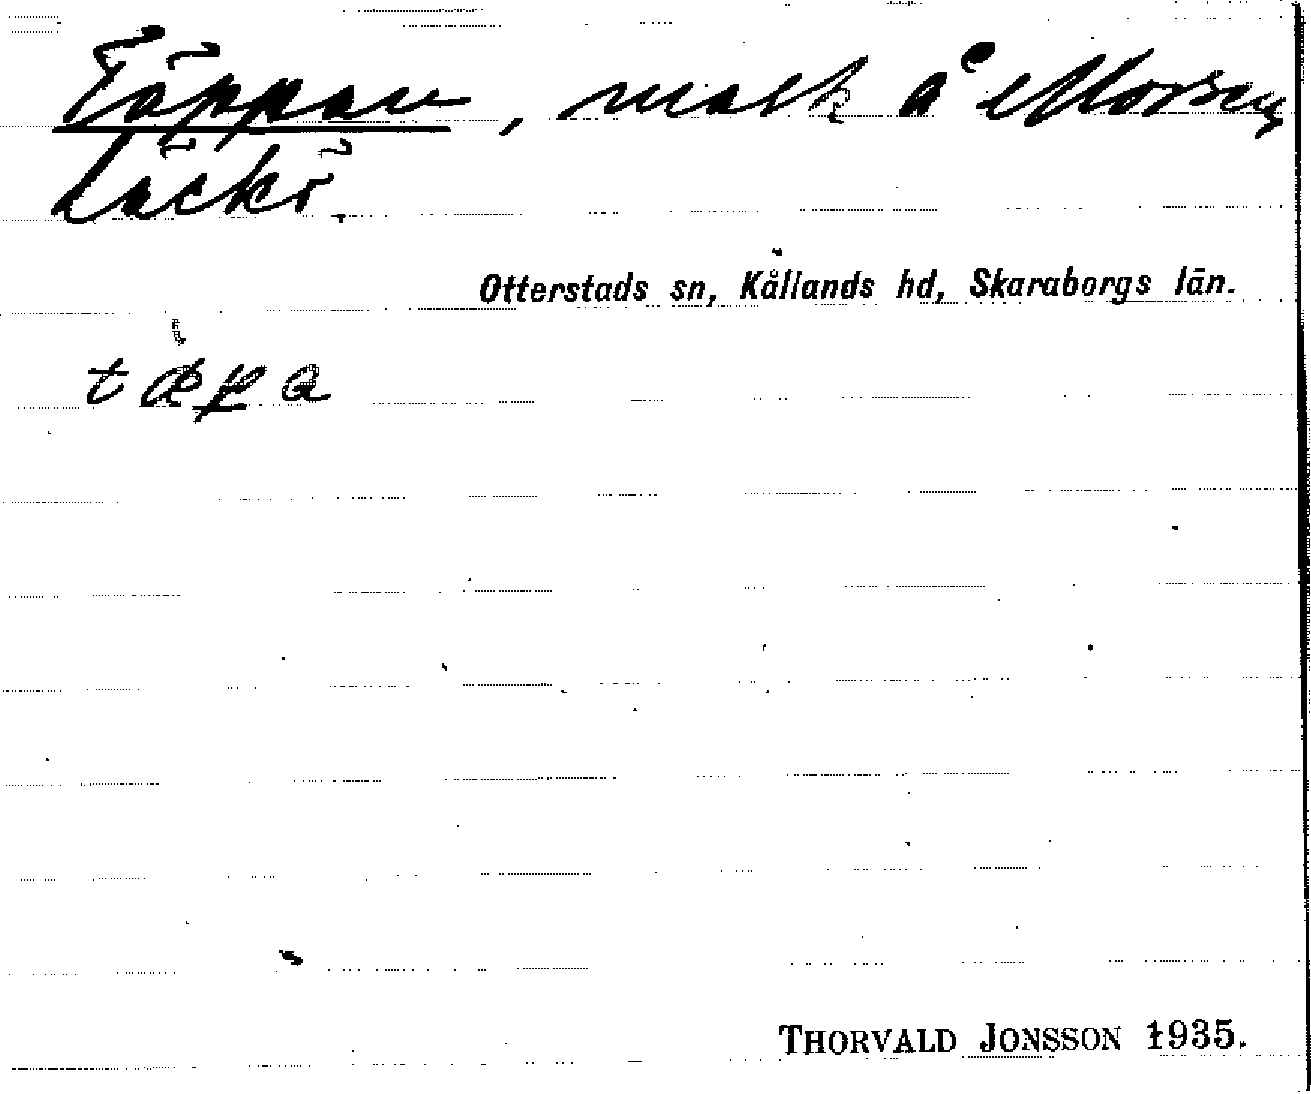 Täppan, mark å Morsen,
Läckö.
Otterstads sn, Kållands hd, Skaraborgs län.
THORVALD JONSSON 1935.